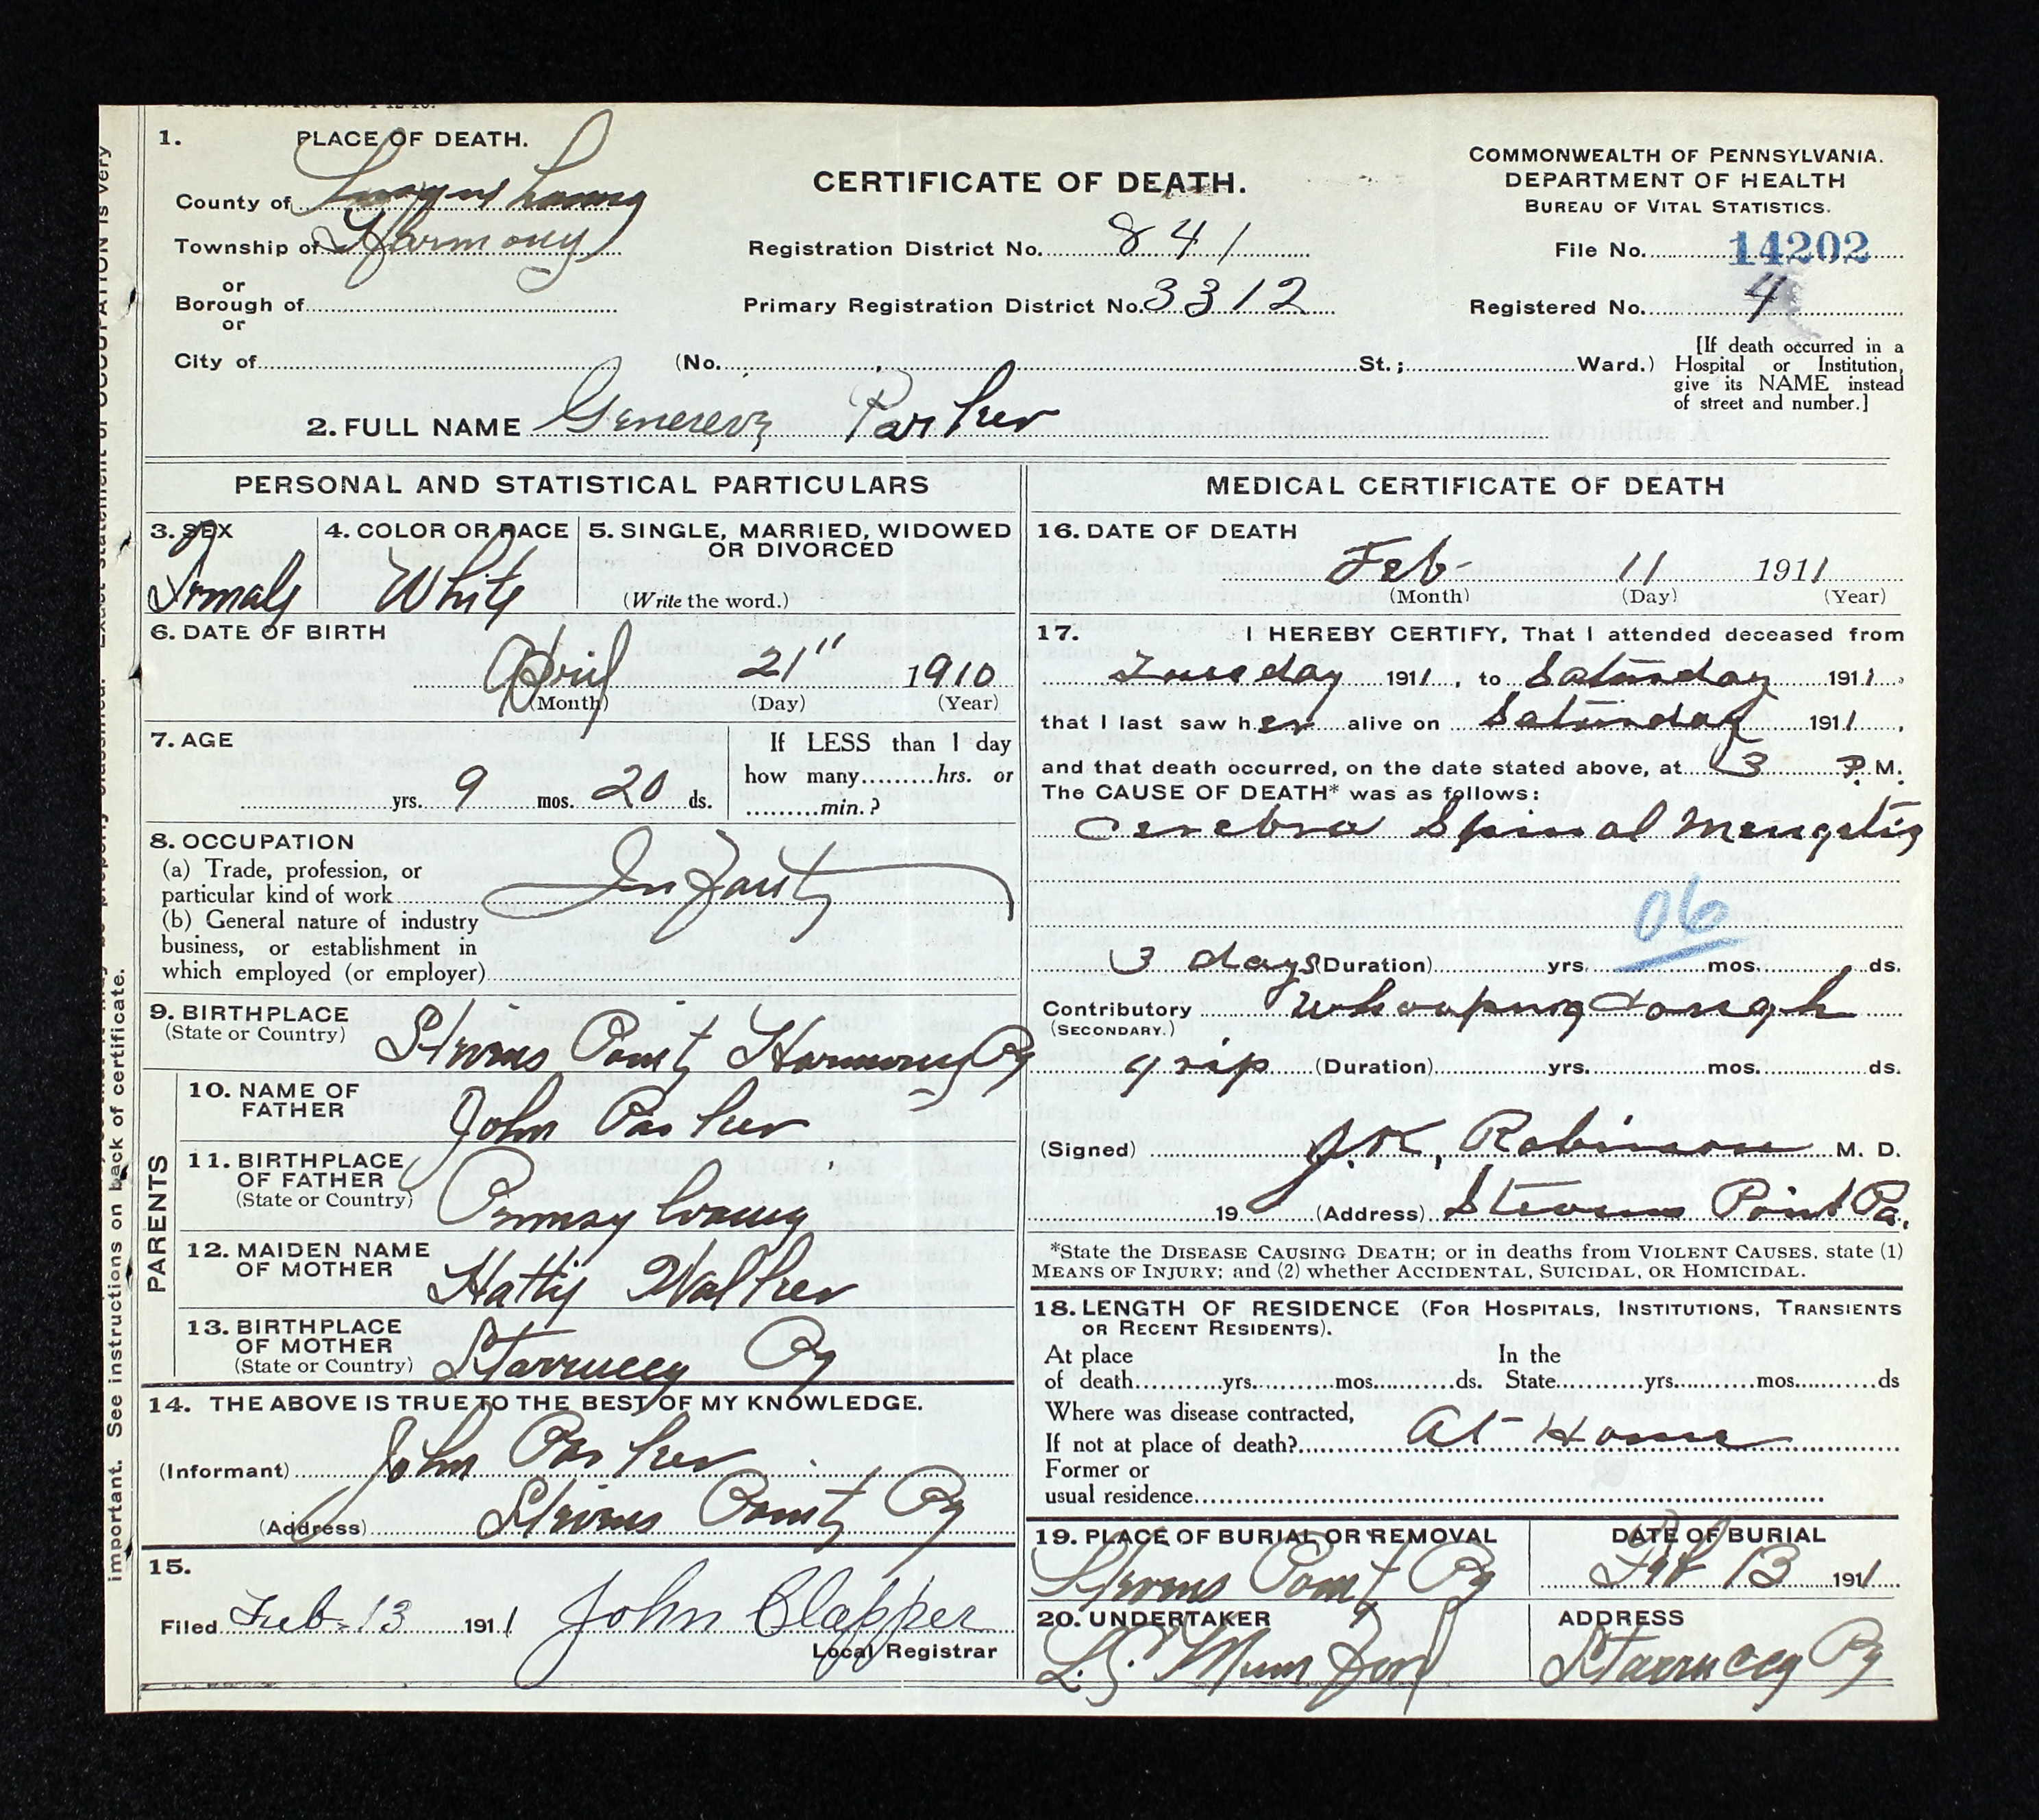 1. PLACE OF DEATH.
County of
Township of Harmony
or
Borough of
or
City of (No. St.; Ward.)
CERTIFICATE OF DEATH.
Registration District No. 841
Primary Registration District No. 3312
COMMONWEALTH OF PENNSYLVANIA.
DEPARTMENT OF HEALTH
BUREAU OF VITAL STATISTICS.
File No. 14202
Registered No. 4
[If death occurred in a
Hospital or Institution,
give its NAME instead
of street and number.]
2. FULL NAME Parker
PERSONAL AND STATISTICAL PARTICULARS
3. SEX
Female
4. COLOR OR RACE
White
5. SINGLE, MARRIED, WIDOWED
OR DIVORCED
(Write the word.)
6. DATE OF BIRTH
April 21" 1910
(Month) (Day) (Year)
7. AGE
yrs. 9 mos. 20 ds.
If LESS than 1 day
how many hrs. or
min.?
8. OCCUPATION
(a) Trade, profession, or
particular kind of work Infant
(b) General nature of industry
business, or establishment in
which employed (or employer)
9. BIRTHPLACE
(State or Country) Stevens Point Harmony Pa
PARENTS
10. NAME OF
FATHER John Parker
11. BIRTHPLACE
OF FATHER
(State or Country) Pennsylvania
12. MAIDEN NAME
OF MOTHER Walker
13. BIRTHPLACE
OF MOTHER
(State or Country) Starrucca Pa
14. THE ABOVE IS TRUE TO THE BEST OF MY KNOWLEDGE.
(Informant) John Parker
(Address) Stevens Point Pa
15.
Filed Feb-13 1911 John Clapper
Local Registrar
MEDICAL CERTIFICATE OF DEATH
16. DATE OF DEATH
Feb- 11 1911
(Month) (Day) (Year)
17. I HEREBY CERTIFY, That I attended deceased from
Tuesday 1911, to Saturday 1911,
that I last saw her alive on Saturday 1911,
and that death occurred, on the date stated above, at 3 P.M.
The CAUSE OF DEATH* was as follows:
Cerebro Spinal Mengetis
06
3 days (Duration) yrs. mos. ds.
Contributory Whooping Cough
(SECONDARY.)
grip (Duration) yrs. mos. ds.
(Signed) J.K. Robinson M. D.
19 (Address) Stevens Point Pa.
*State the DISEASE CAUSING DEATH; or in deaths from VIOLENT CAUSES, state (1)
MEANS OF INJURY; and (2) whether ACCIDENTAL, SUICIDAL, OR HOMICIDAL.
18. LENGTH OF RESIDENCE (FOR HOSPITALS, INSTITUTIONS, TRANSIENTS
OR RECENT RESIDENTS).
At place In the
of death yrs. mos. ds. State yrs. mos. ds
Where was disease contracted,
If not at place of death? At Home
Former or
usual residence
19. PLACE OF BURIAL OR REMOVAL
Stevens Point Pa
DATE OF BURIAL
Feb 13 1911
20. UNDERTAKER
ADDRESS
Starrucca Pa
important. See instructions on back of certificate.